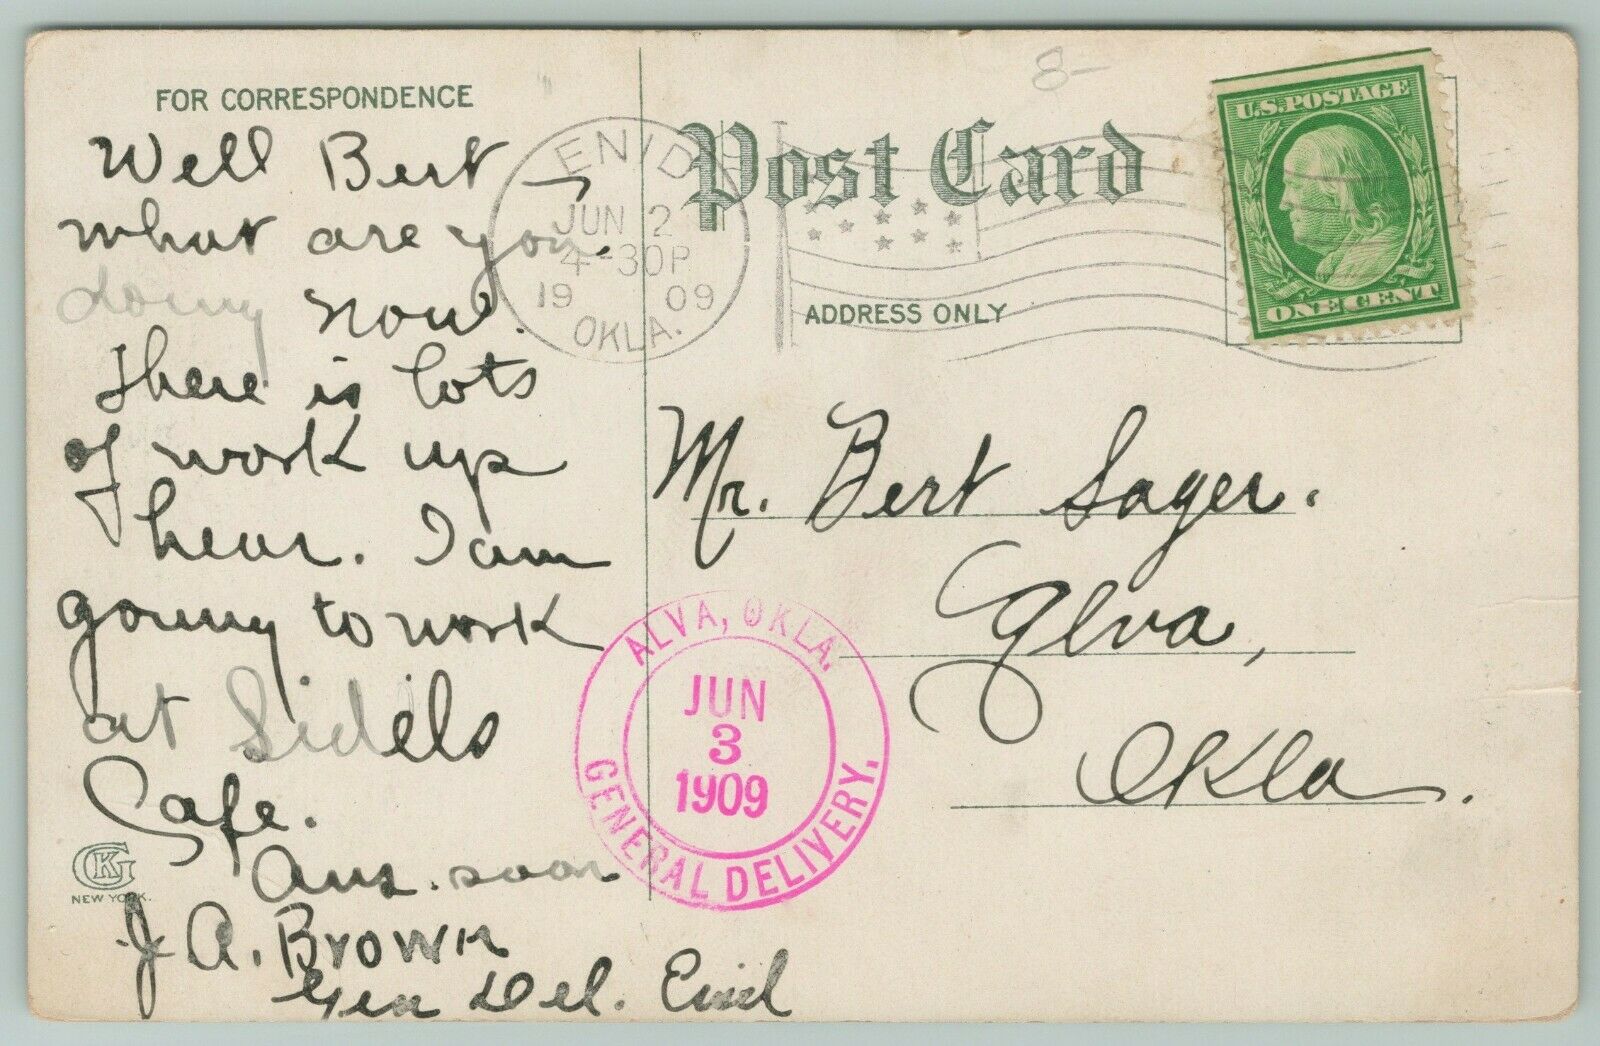 8-
FOR CORRESPONDENCE
Post Card
U.S. POSTAGE
ONE CENT
ADDRESS ONLY
ENID
JUN 2
4-30P
19 09
OKLA.
Well Bert
what are you
doing now.
There is lots
of work up
hear. I am
going to work
at Sidels
Cafe.
Ans. soon
J. A. Brown
Gen Del. Enid
CKG
NEW YORK.
Mr. Bert Sager.
Alva,
Okla.
ALVA, OKLA.
JUN
3
1909
GENERAL DELIVERY.